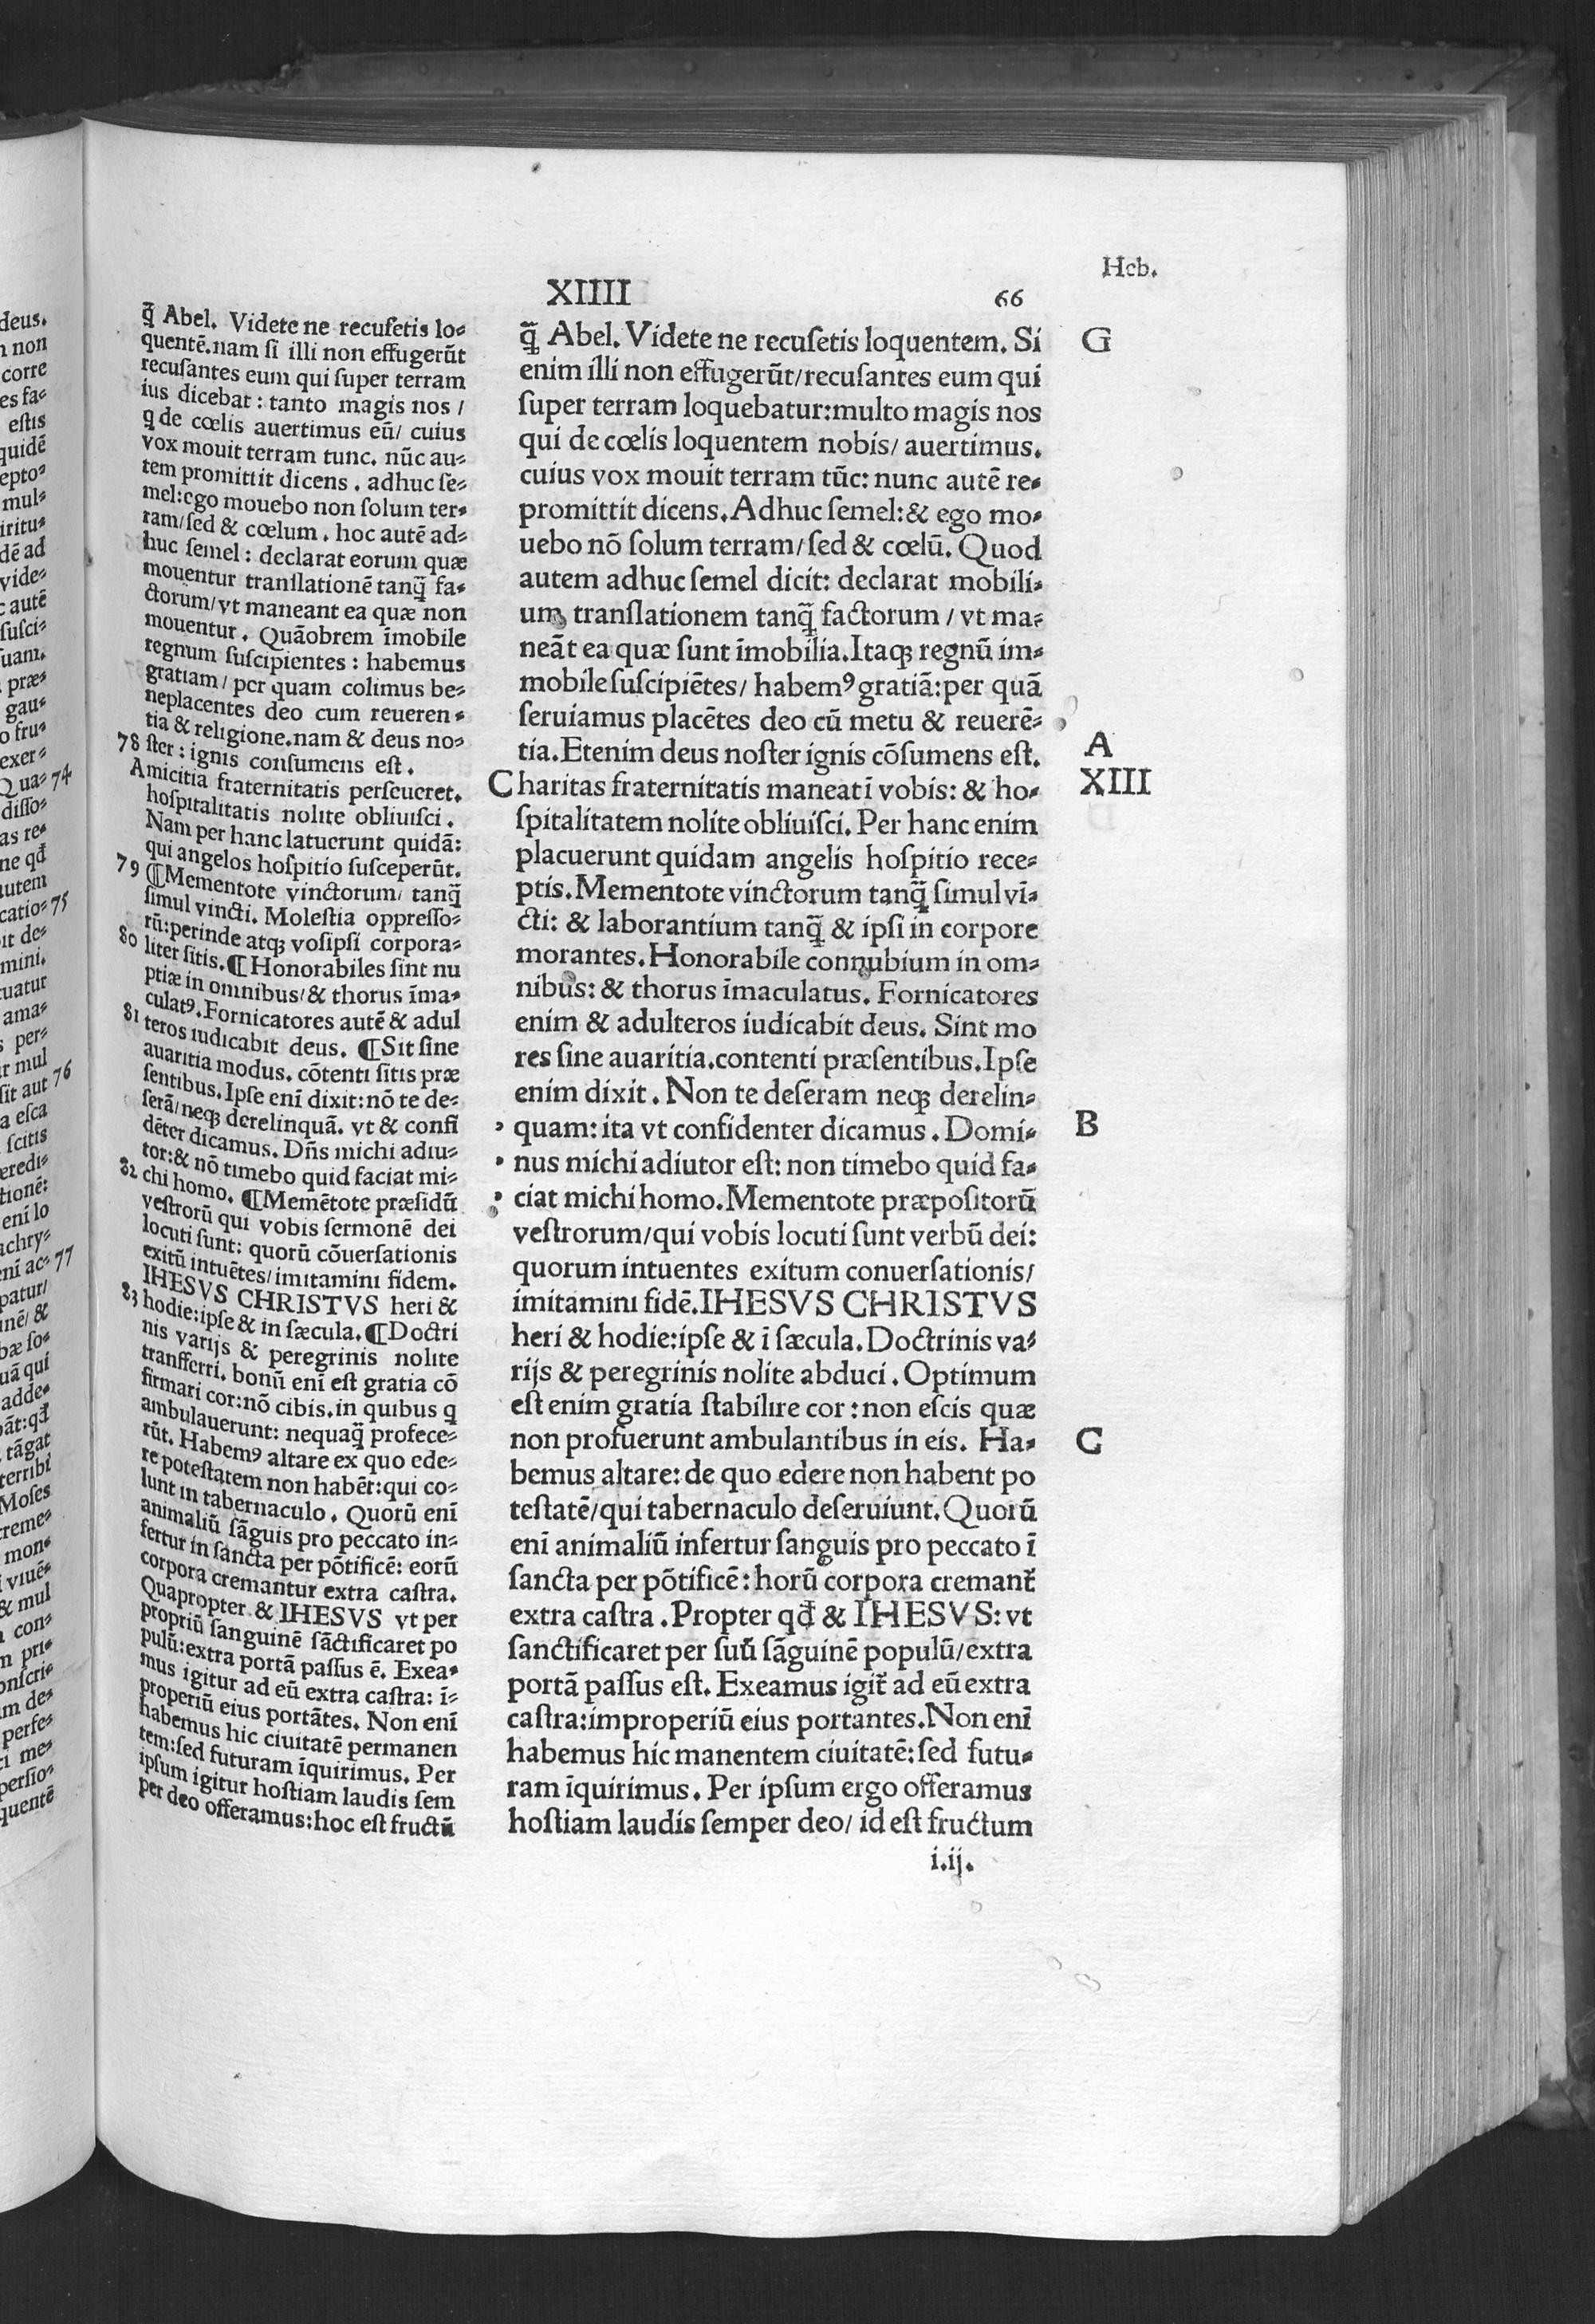 Heb.
XIIII
66
q̃ Abel. Videte ne recuſetis lo-
quentē.nam ſi illi non effugerūt
recuſantes eum qui ſuper terram
ius dicebat : tanto magis nos /
ꝗ de cœlis auertimus eū/ cuius
vox mouit terram tunc. nūc au-
tem promittit dicens . adhuc ſe-
mel:ego mouebo non ſolum ter-
ram/ſed & cœlum . hoc autē ad-
huc ſemel : declarat eorum quæ
mouentur tranſlationē tanꝗ̃ fa-
ctorum/vt maneant ea quæ non
mouentur . Quāobrem īmobile
regnum ſuſcipientes : habemus
gratiam/ per quam colimus be-
neplacentes deo cum reueren-
tia & religione.nam & deus no-
78 ſter : ignis conſumens eſt .
Amicitia fraternitatis perſeueret.
hoſpitalitatis nolite obliuiſci .
Nam per hanc latuerunt quidā:
qui angelos hoſpitio ſuſceperūt.
79 ¶Mementote vinctorum/ tanꝗ̃
ſimul vincti. Moleſtia oppreſſo-
rū:perinde atqꝫ voſipſi corpora-
80 liter ſitis.¶Honorabiles ſint nu
ptiæ in omnibus/& thorus īma-
culatꝰ.Fornicatores autē & adul
81 teros iudicabit deus. ¶Sit ſine
auaritia modus. cōtenti ſitis præ
ſentibus.Ipſe enī dixit:nō te de-
ſerā/neqꝫ derelinquā. vt & confi
dēter dicamus. Dn̄s michi adiu-
tor:& nō timebo quid faciat mi-
82 chi homo. ¶Memētote præſidū
veſtrorū qui vobis ſermonē dei
locuti ſunt: quorū cōuerſationis
exitū intuētes/imitamini fidem.
IHESVS CHRISTVS heri &
83 hodie:ipſe & in ſæcula.¶Doctri
nis varijs & peregrinis nolite
tranſferri. bonū enī eſt gratia cō
firmari cor:nō cibis.in quibus ꝗ
ambulauerunt: nequaꝗ̃ profece-
rūt. Habemꝰ altare ex quo ede-
re poteſtatem non habēt:qui co-
lunt in tabernaculo . Quorū enī
animaliū ſāguis pro peccato in-
fertur in ſancta per pōtificē: eorū
corpora cremantur extra caſtra.
Quapropter & IHESVS vt per
propriū ſanguinē ſāctificaret po
pulū:extra portā paſſus ē. Exea-
mus igitur ad eū extra caſtra: ī-
properiū eius portātes. Non enī
habemus hic ciuitatē permanen
tem:ſed futuram īquirimus. Per
ipſum igitur hoſtiam laudis ſem
per deo offeramus:hoc eſt fructū
ꝗ̃ Abel. Videte ne recuſetis loquentem. Si
enim illi non effugerūt/recuſantes eum qui
ſuper terram loquebatur:multo magis nos
qui de cœlis loquentem nobis/ auertimus.
cuius vox mouit terram tūc: nunc autē re-
promittit dicens.Adhuc ſemel:& ego mo-
uebo nō ſolum terram/ſed & cœlū. Quod
autem adhuc ſemel dicit: declarat mobili-
um tranſlationem tanꝗ̃ factorum / vt ma-
neāt ea quæ ſunt īmobilia.Itaqꝫ regnū im-
mobile ſuſcipiētes/ habemꝰ gratiā:per quā
ſeruiamus placētes deo cū metu & reuerē-
tia.Etenim deus noſter ignis cōſumens eſt.
Charitas fraternitatis maneat ī vobis: & ho-
ſpitalitatem nolite obliuiſci. Per hanc enim
placuerunt quidam angelis hoſpitio rece-
ptis.Mementote vinctorum tanꝗ̃ ſimul vī-
cti: & laborantium tanꝗ̃ & ipſi in corpore
morantes.Honorabile connubium in om-
nibus: & thorus īmaculatus. Fornicatores
enim & adulteros iudicabit deus. Sint mo
res ſine auaritia.contenti præſentibus.Ipſe
enim dixit . Non te deſeram neqꝫ derelin-
quam: ita vt confidenter dicamus . Domi-
nus michi adiutor eſt: non timebo quid fa-
ciat michi homo.Mementote præpoſitorū
veſtrorum/qui vobis locuti ſunt verbū dei:
quorum intuentes exitum conuerſationis/
imitamini fidē.IHESVS CHRISTVS
heri & hodie:ipſe & ī ſæcula.Doctrinis va-
rijs & peregrinis nolite abduci . Optimum
eſt enim gratia ſtabilire cor : non eſcis quæ
non profuerunt ambulantibus in eis. Ha-
bemus altare: de quo edere non habent po
teſtatē/qui tabernaculo deſeruiunt.Quorū
enī animaliū infertur ſanguis pro peccato ī
ſancta per pōtificē: horū corpora cremant̃
extra caſtra . Propter qđ & IHESVS: vt
ſanctificaret per ſuū ſāguinē populū/extra
portā paſſus eſt. Exeamus igit̃ ad eū extra
caſtra:improperiū eius portantes.Non enī
habemus hic manentem ciuitatē:ſed futu-
ram īquirimus. Per ipſum ergo offeramus
hoſtiam laudis ſemper deo/ id eſt fructum
i.ij.
G
A
XIII
B
C
74
75
76
77